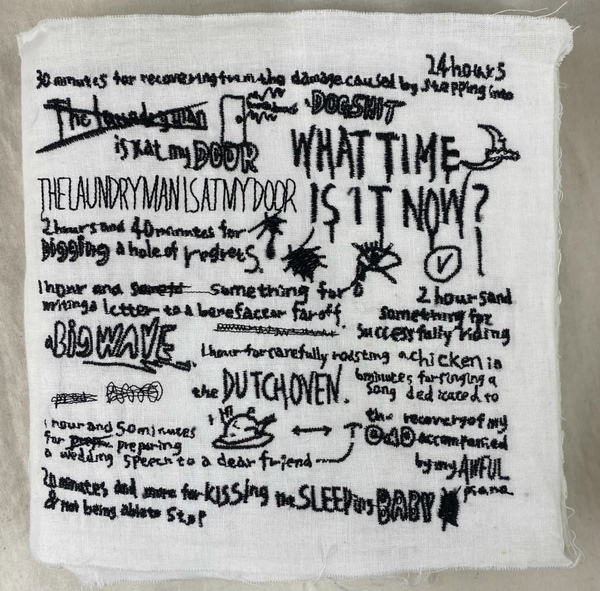 24 hours
30 minutes for recovering from the damage caused by stepping into
DOGSHIT
The laundryman
is at my DOOR
THE LAUNDRYMAN IS AT MY DOOR
WHAT TIME
IS IT NOW?
2 hours and 40 minutes for
DIGGING a hole of regrets.
1 hour and something for
writing a letter to a benefactor far off.
2 hours and
something for
successfully riding
a BIG WAVE.
1 hour for carefully roasting a chicken in
the DUTCH OVEN.
6 minutes for singing a
song dedicated to
the recovery of my
DAD accompanied
by my AWFUL
piano
1 hour and 50 minutes
for preparing
a wedding speech to a dear friend
20 minutes and more for KISSING the SLEEPING BABY
& not being able to stop